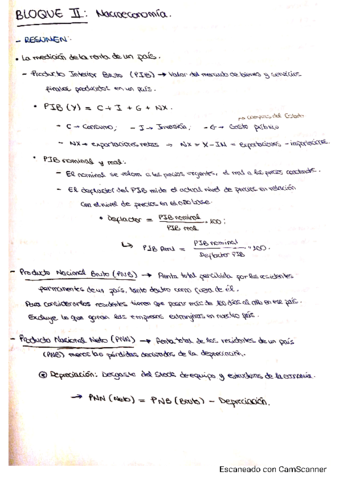 BLOQUE II: Macroeconomía.
- RESUMEN:
• La medición de la renta de un país.
- Producto Interior Bruto (PIB) → Valor del mercado de bienes y servicios
finales producidos en un país.
• PIB (Y) = C + I + G + NX.
→ compras del Estado
- C → Consumo; - I → Inversión; - G → Gasto público
- NX → exportaciones netas → NX = X - IM = Exportaciones - importaciones.
• PIB nominal y real:
- El nominal se valora a los precios vigentes, el real a los precios constantes.
- El deflactor del PIB mide el actual nivel de precios en relación
con el nivel de precios en el año base.
• Deflactor = PIB nominal / PIB real · 100;
↳ PIB Real = PIB nominal / Deflactor PIB · 100.
- Producto Nacional Bruto (PNB) → Renta total percibida por los residentes
permanentes de un país, tanto dentro como fuera de él.
Para considerarlos residentes tienen que pasar más de días al año en ese país.
Excluye lo que ganan las empresas extranjeras en nuestro país.
- Producto Nacional Neto (PNN) → Renta total de los residentes de un país
(PNB) menos las pérdidas derivadas de la depreciación.
Depreciación: Desgaste del stock de equipo y estructuras de la economía.
→ PNN (Neto) = PNB (Bruto) - Depreciación.
Escaneado con CamScanner